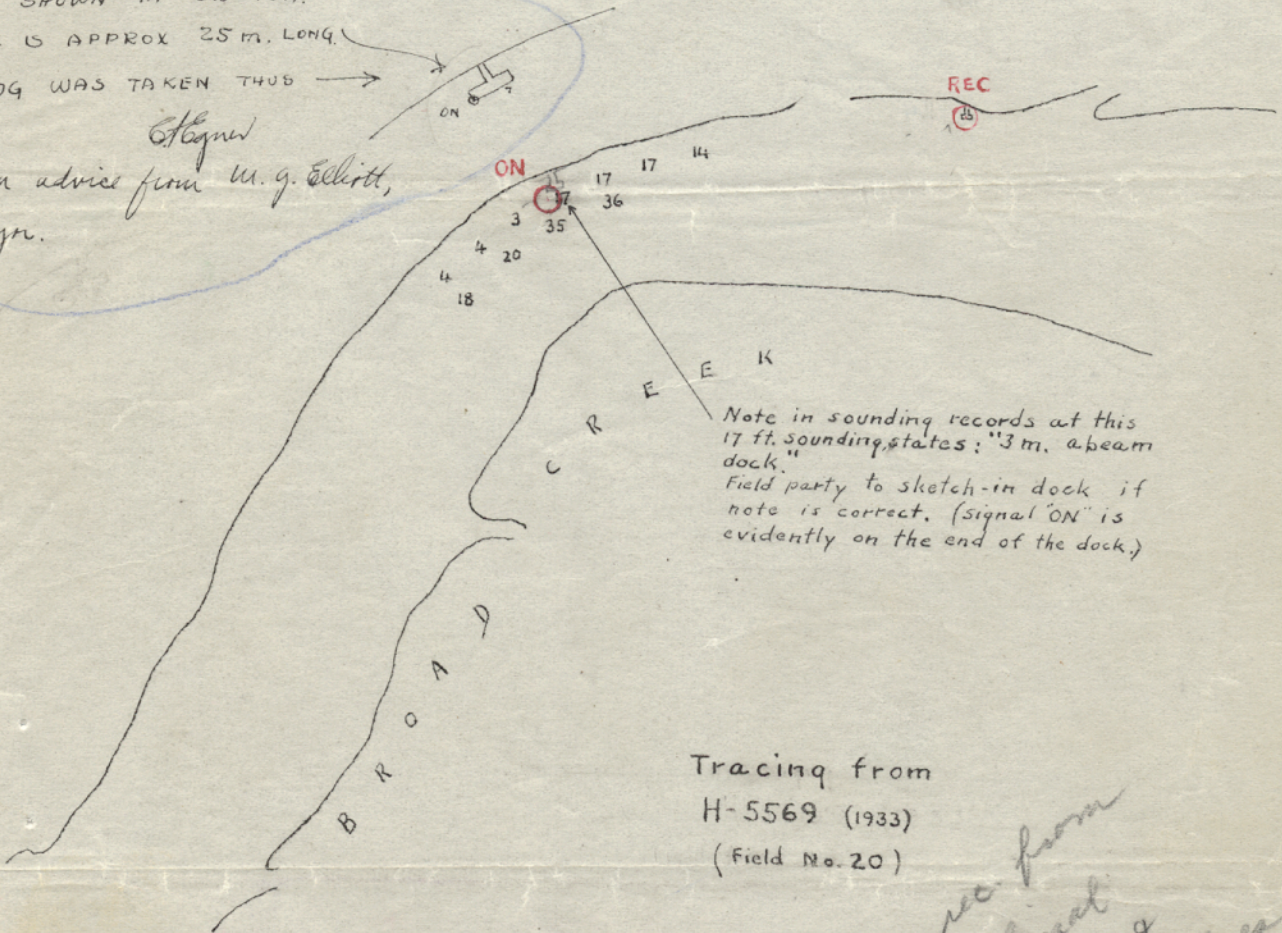 SHOWN IN
IS APPROX 25 m. LONG.
WAS TAKEN THUS
ON
advice from M. G. Elliott,
REC
ON
14
17
17
36
17
3
35
4
20
4
18
BROAD CREEK
Note in sounding records at this
17 ft. sounding, states: "3 m. abeam
dock."
Field party to sketch-in dock if
note is correct. (signal "ON" is
evidently on the end of the dock.)
Tracing from
H-5569 (1933)
(Field No. 20)
rec. from